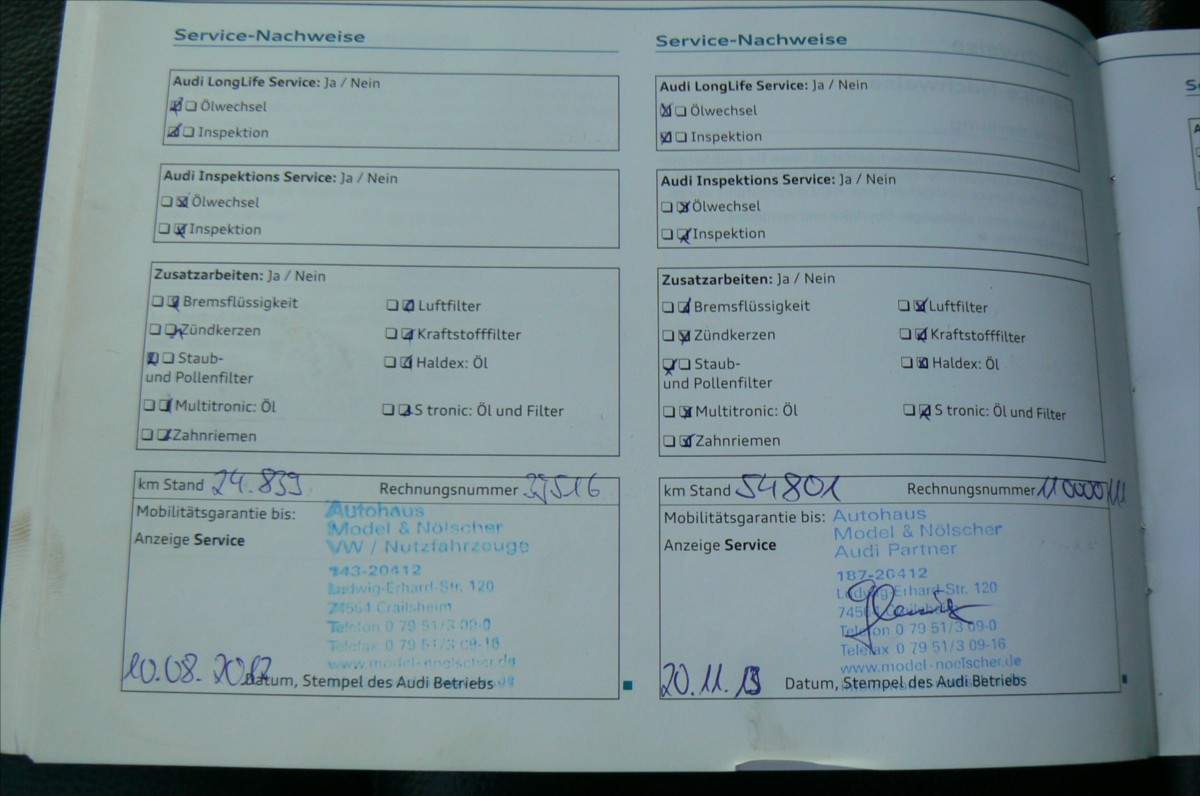 Service-Nachweise
Audi LongLife Service: Ja / Nein
Ölwechsel
Inspektion
Audi Inspektions Service: Ja / Nein
Ölwechsel
Inspektion
Zusatzarbeiten: Ja / Nein
Bremsflüssigkeit
Luftfilter
Zündkerzen
Kraftstofffilter
Staub-
und Pollenfilter
Haldex: Öl
Multitronic: Öl
S tronic: Öl und Filter
Zahnriemen
km Stand 24.839
Rechnungsnummer 37516
Mobilitätsgarantie bis:
Anzeige Service
Autohaus
Model & Nölscher
VW / Nutzfahrzeuge
143-20412
Ludwig-Erhard-Str. 120
74564 Crailsheim
Telefon 0 79 51/3 09-0
Telefax 0 79 51/3 09-16
www.model-noelscher.de
10.08.2012
Datum, Stempel des Audi Betriebs
Service-Nachweise
Audi LongLife Service: Ja / Nein
Ölwechsel
Inspektion
Audi Inspektions Service: Ja / Nein
Ölwechsel
Inspektion
Zusatzarbeiten: Ja / Nein
Bremsflüssigkeit
Luftfilter
Zündkerzen
Kraftstofffilter
Staub-
und Pollenfilter
Haldex: Öl
Multitronic: Öl
S tronic: Öl und Filter
Zahnriemen
km Stand 54801
Rechnungsnummer 110000111
Mobilitätsgarantie bis:
Anzeige Service
Autohaus
Model & Nölscher
Audi Partner
187-20412
Ludwig-Erhard-Str. 120
74564 Crailsheim
Telefon 0 79 51/3 09-0
Telefax 0 79 51/3 09-16
www.model-noelscher.de
20.11.13
Datum, Stempel des Audi Betriebs